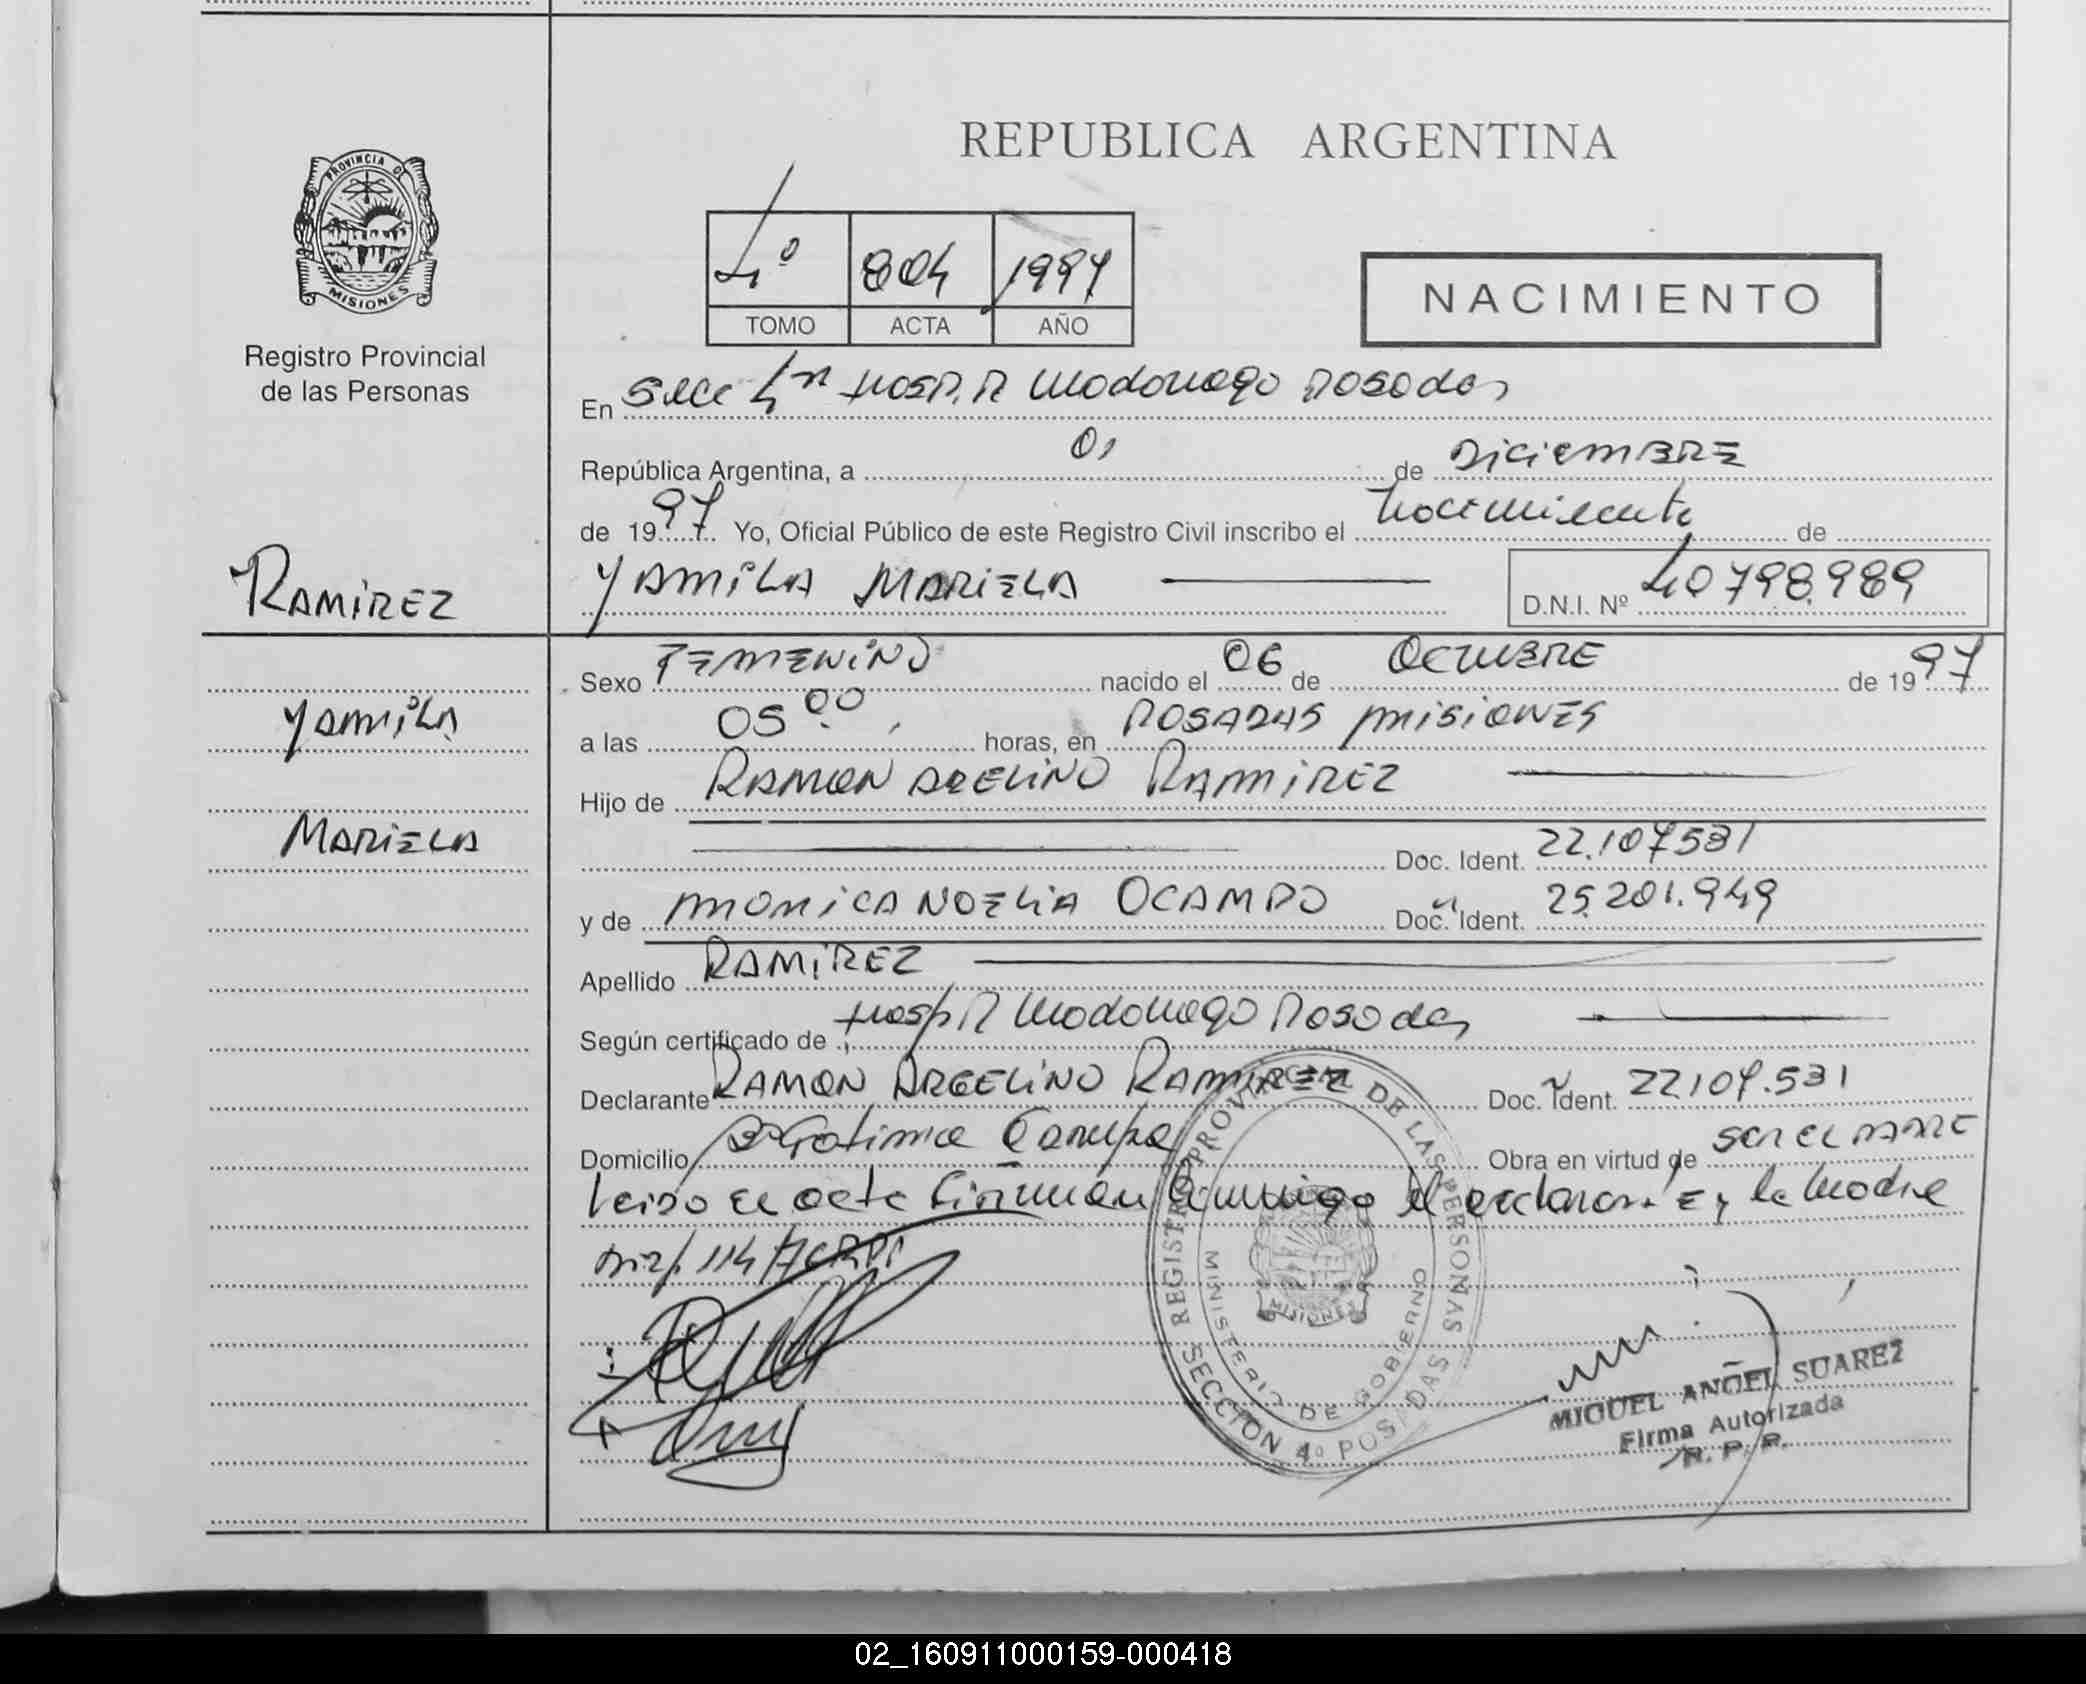 REPUBLICA ARGENTINA
PROVINCIA DE
MISIONES
Registro Provincial
de las Personas
4º 804 1997
TOMO ACTA AÑO
NACIMIENTO
En Secc 4ta Hosp. R Madariaga Posadas
República Argentina, a 01 de Diciembre
de 1997 Yo, Oficial Público de este Registro Civil inscribo el nacimiento de
RAMIREZ
YAMILA MARIELA
D.N.I. Nº 40798.989
Sexo FEMENINO nacido el 06 de OCTUBRE de 1997
YAMILA
a las 05 00 horas, en POSADAS MISIONES
Hijo de RAMON ARGELINO RAMIREZ
MARIELA
Doc. Ident. 22.107531
y de MONICA NOELIA OCAMPO Doc. Ident. 25.201.949
Apellido RAMIREZ
Según certificado de Hosp R Madariaga Posadas
Declarante RAMON ARGELINO RAMIREZ Doc. Ident. 22107.531
Domicilio Bº Fatima Garupa Obra en virtud de SER EL PADRE
Leido el acta firman conmigo el declarante y la Madre
REGISTRO PROVINCIAL DE LAS PERSONAS
MINISTERIO DE GOBIERNO
MISIONES
SECCION 4º POSADAS
MIGUEL ANGEL SUAREZ
Firma Autorizada
R. P. P.
02_160911000159-000418